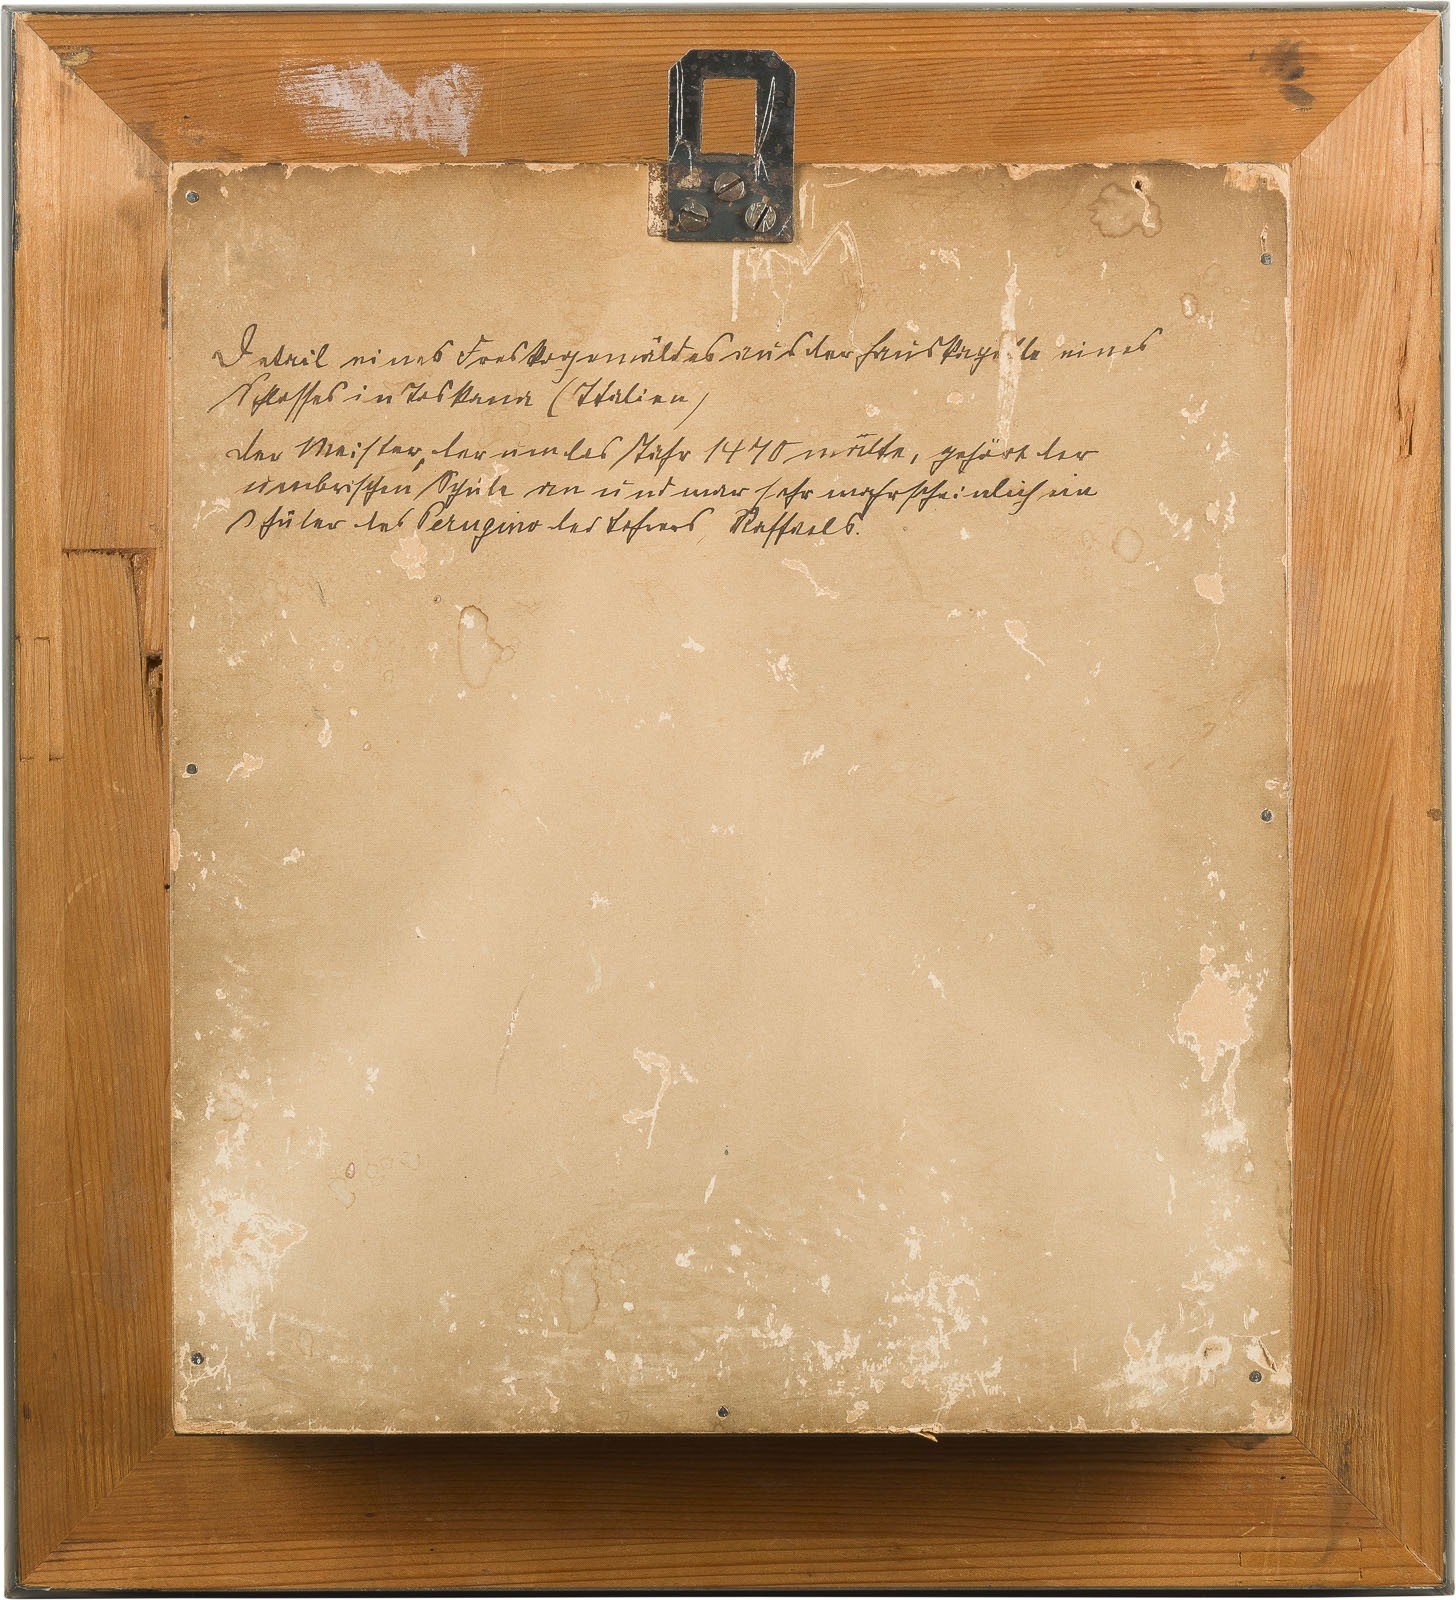 Detail eines Freskogemäldes aus der Hauskapelle eines
Schlosses in Toskana (Italien)
der Meister, der um das Jahr 1470 malte, gehört der
umbrischen Schule an und war sehr wahrscheinlich ein
Schüler des Perugino des Lehrers Raffaels.